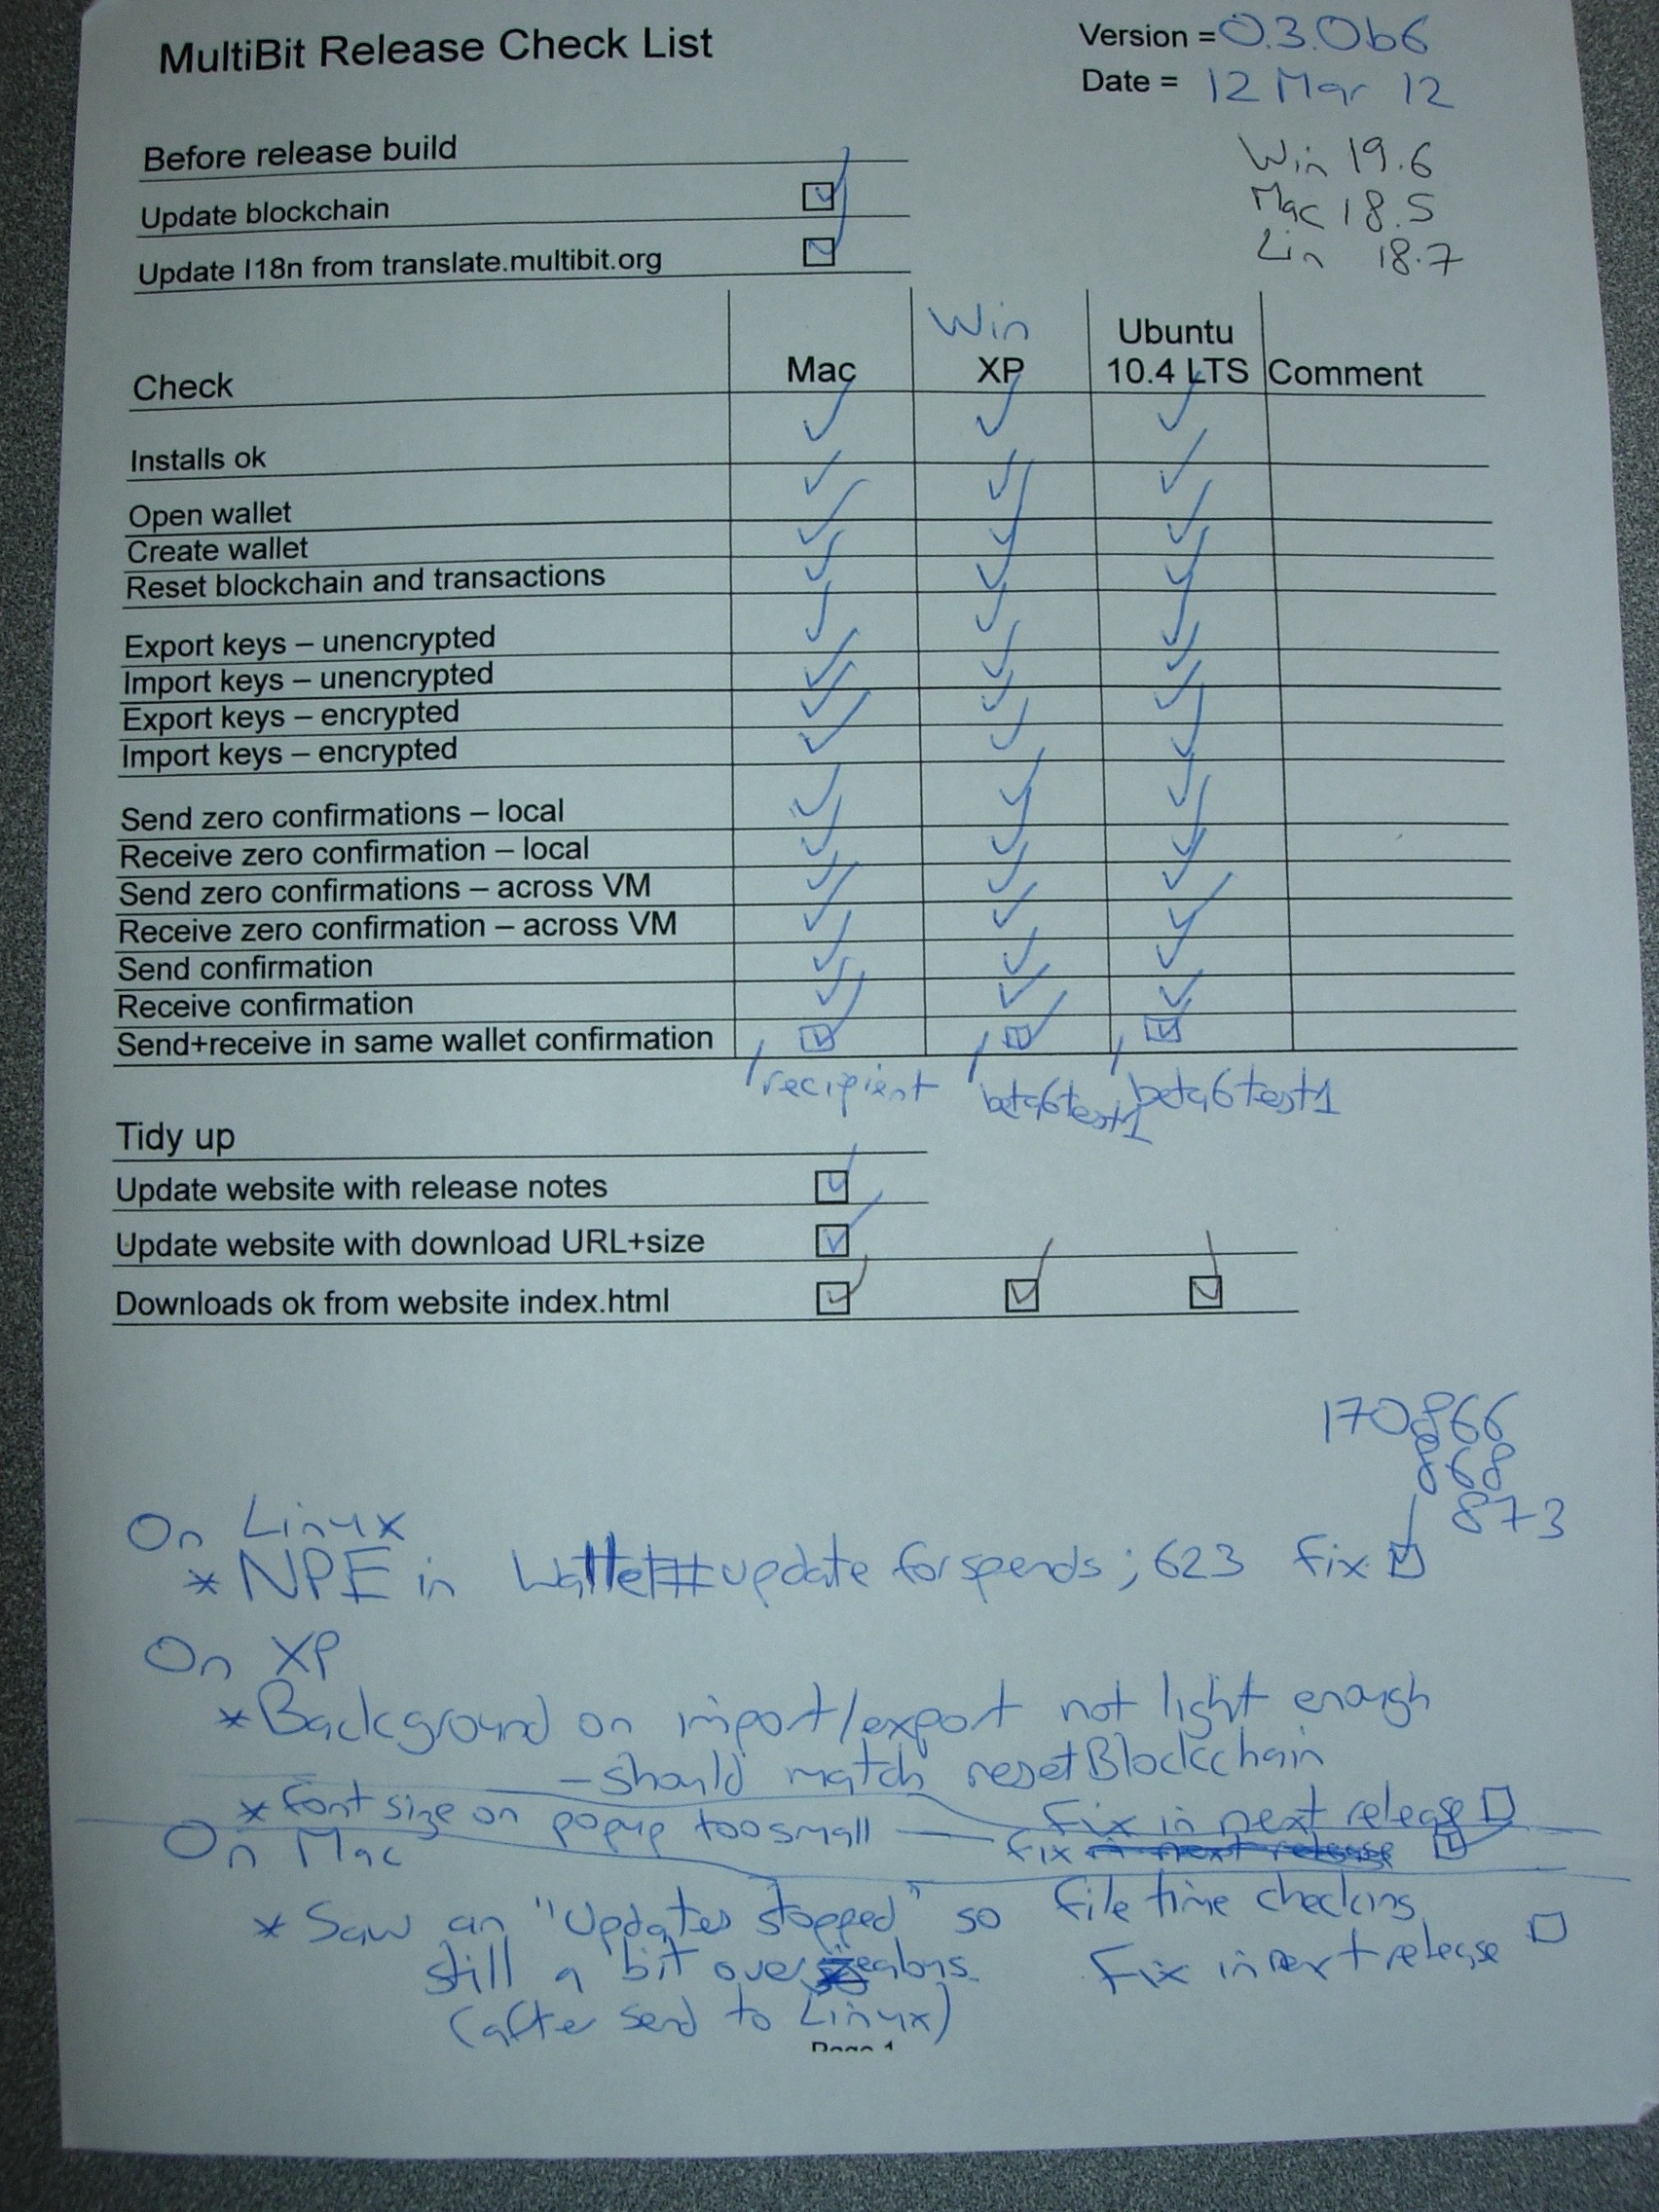 MultiBit Release Check List
Version = 0.3.0b6
Date = 12 Mar 12
Win 19.6
Mac 18.5
Lin 18.7
Before release build
Update blockchain
Update I18n from translate.multibit.org
Check Mac Win XP Ubuntu 10.4 LTS Comment
Installs ok
Open wallet
Create wallet
Reset blockchain and transactions
Export keys – unencrypted
Import keys – unencrypted
Export keys – encrypted
Import keys – encrypted
Send zero confirmations – local
Receive zero confirmation – local
Send zero confirmations – across VM
Receive zero confirmation – across VM
Send confirmation
Receive confirmation
Send+receive in same wallet confirmation
recipient beta6test1 beta6test1
Tidy up
Update website with release notes
Update website with download URL+size
Downloads ok from website index.html
170866
868
873
On Linux
* NPE in Wallet#updateforspends ; 623 fix
On XP
* Background on import/export not light enough
– should match resetBlockchain
fix in next release
* font size on popup too small — fix in next release
On Mac
* Saw an "Updates stopped" so file time checking
still a bit overzealous. Fix in next release
(after send to Linux)
Page 1